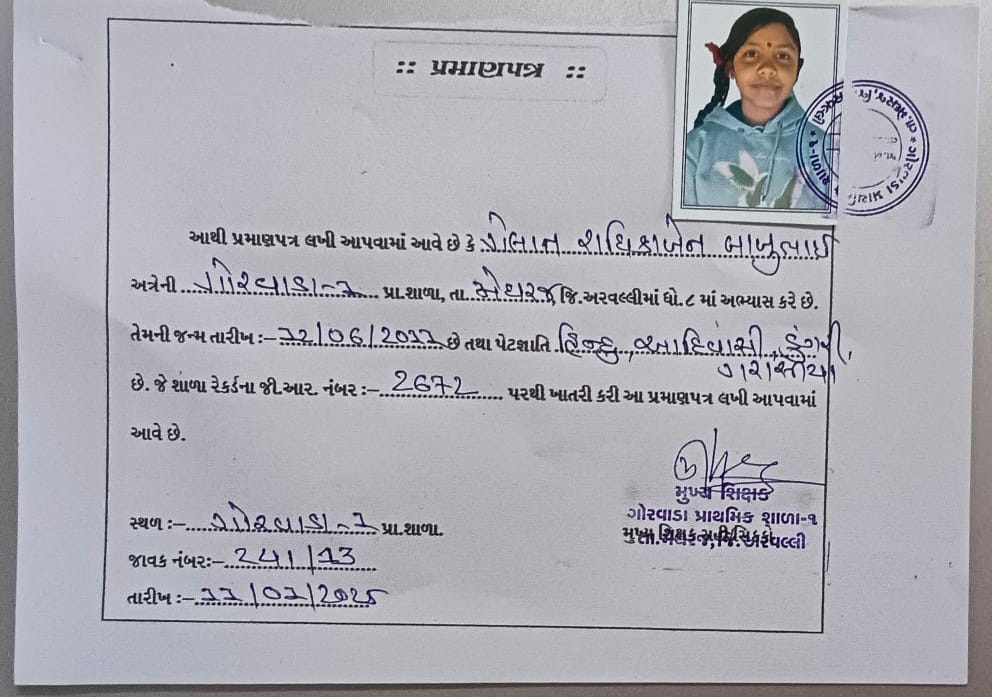 :: પ્રમાણપત્ર ::
આથી પ્રમાણપત્ર લખી આપવામાં આવે છે કે ગેલાત રાધિકાબેન બાબુભાઈ
અત્રેની ગોરવાડા-૧ પ્રા.શાળા, તા. મેઘરજ જિ.અરવલ્લીમાં ધો.૮ માં અભ્યાસ કરે છે.
તેમની જન્મ તારીખ :- 12/06/2011 છે તથા પેટાજ્ઞાતિ હિન્દુ, આદિવાસી, ડુંગરી,
ગરાસીયા
છે. જે શાળા રેકર્ડના જી.આર. નંબર :- 2672 પરથી ખાતરી કરી આ પ્રમાણપત્ર લખી આપવામાં
આવે છે.
મુખ્ય શિક્ષક
ગોરવાડા પ્રાથમિક શાળા-૧
તા.મેઘરજ, જિ.અરવલ્લી
સ્થળ :- ગોરવાડા-૧ પ્રા.શાળા.
જાવક નંબર:- 241/13
તારીખ :- 11/07/2025